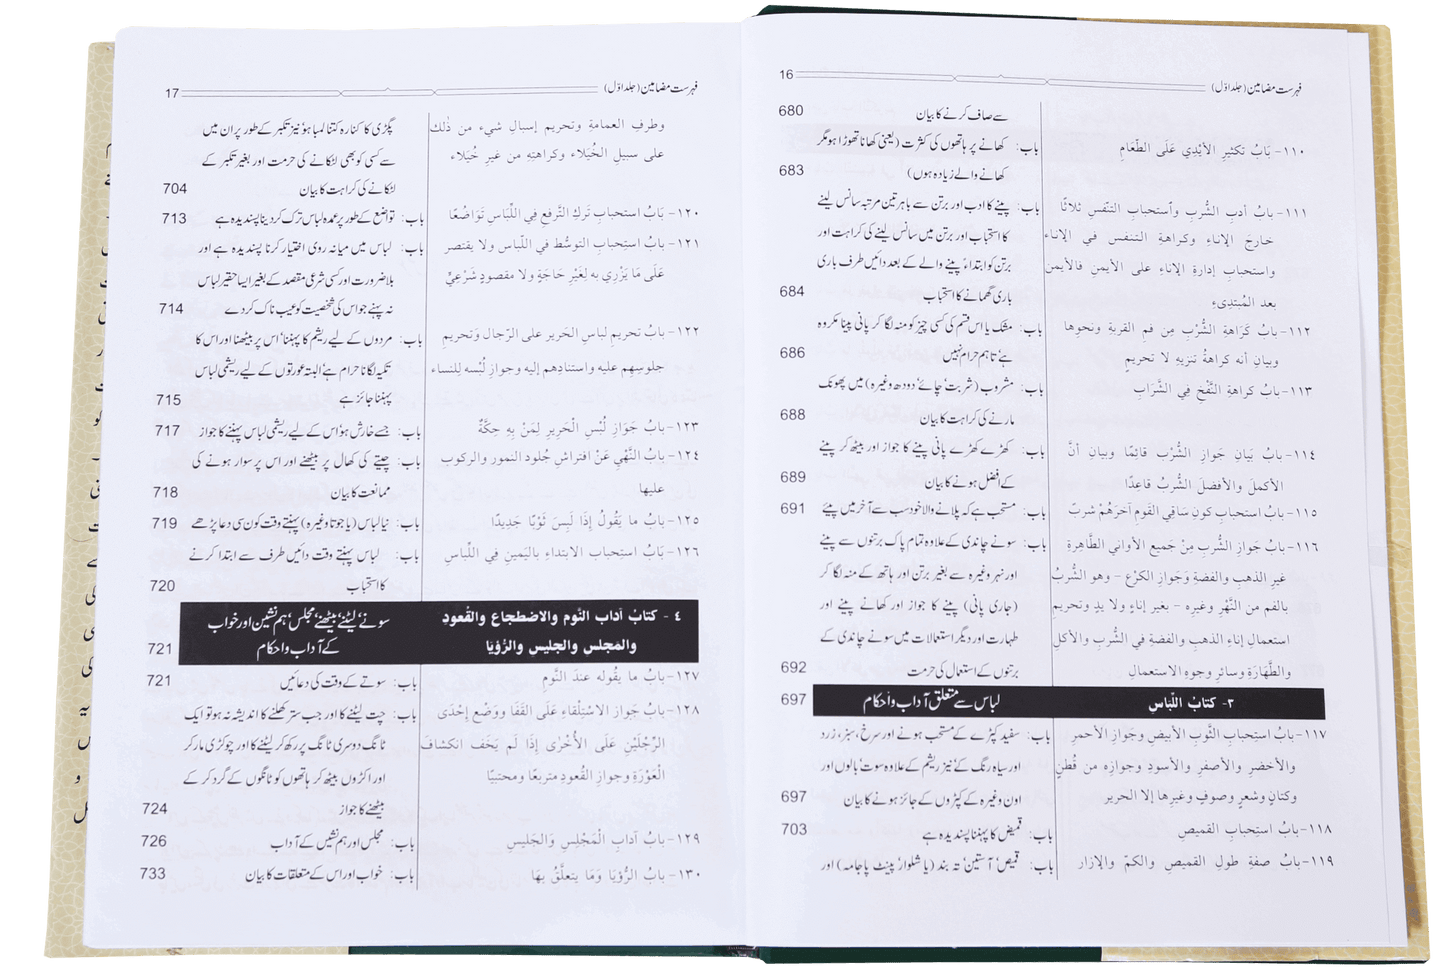 فہرست مضامین (جلد اوّل) 16
سے صاف کرنے کا بیان 680
١١٠- بَابُ تكثيرِ الأيْدِي عَلَى الطّعَامِ باب: کھانے پر ہاتھوں کی کثرت (یعنی کھانا تھوڑا ہو مگر
کھانے والے زیادہ ہوں) 683
١١١- بابُ أدبِ الشُّربِ واستحبابِ التنفّسِ ثلاثًا باب: پینے کا ادب اور برتن سے باہر تین مرتبہ سانس لینے
خارجَ الإناءِ وكراهةِ التنفس في الإناء کا استحباب اور برتن میں سانس لینے کی کراہت اور
واستحبابِ إدارةِ الإناءِ على الأيمنِ فالأيمن برتن کو ابتداءً پینے والے کے بعد دائیں طرف باری
بعد المُبتدِىءِ باری گھمانے کا استحباب 684
١١٢- بابُ كَرَاهةِ الشُّرْبِ مِن فمِ القربةِ ونحوِها باب: مشک یا اس قسم کی کسی چیز کو منہ لگا کر پانی پینا مکروہ
وبيانِ أنه كراهةُ تنزيهٍ لا تحريمٍ ہے تاہم حرام نہیں 686
١١٣- بابُ كراهةِ النَّفْخِ فِي الشَّرَابِ باب: مشروب (شربت، چائے، دودھ وغیرہ) میں پھونک
مارنے کی کراہت کا بیان 688
١١٤- بابُ بَيَانِ جَوازِ الشُّرْبِ قائِمًا وبيانِ أنَّ باب: کھڑے کھڑے پانی پینے کا جواز اور بیٹھ کر پینے
الأكملَ والأفضلَ الشُّربُ قاعِدًا کے افضل ہونے کا بیان 689
١١٥- بابُ استحبابِ كونِ سَاقِي القومِ آخرَهُمْ شربًا باب: مستحب ہے کہ پلانے والا خود سب سے آخر میں پیئے 691
١١٦- بابُ جَوازِ الشُّربِ مِنْ جَميعِ الأواني الطَّاهرةِ باب: سونے چاندی کے علاوہ تمام پاک برتنوں سے پینے
غيرِ الذهبِ والفضةِ وَجَوازِ الكَرْعِ – وهو الشُّربُ اور نہر وغیرہ سے بغیر برتن اور ہاتھ کے منہ لگا کر
بالفم من النَّهْرِ وغيرِه – بغيرِ إناءٍ ولا يدٍ وتحريمِ (جاری پانی) پینے کا جواز اور کھانے پینے اور
استعمالِ إناءِ الذهبِ والفضةِ في الشُّربِ والأكلِ طہارت اور دیگر استعمالات میں سونے چاندی کے
والطَّهَارَةِ وسائرِ وجوهِ الاستعمالِ برتنوں کے استعمال کی حرمت 692
٣- كتابُ اللّباسِ لباس سے متعلق آداب و احکام 697
١١٧- بابُ استحبابِ الثَّوبِ الأبيضِ وجَوازِ الأحمرِ باب: سفید کپڑے کے مستحب ہونے اور سرخ، سبز، زرد
والأخضرِ والأصفرِ والأسودِ وجوازِه من قُطنٍ اور سیاہ رنگ کے نیز ریشم کے علاوہ سوت، بالوں اور
وكتانٍ وشعرٍ وصوفٍ وغيرِها إلا الحرير اون وغیرہ کے کپڑوں کے جائز ہونے کا بیان 697
١١٨- بابُ استحبابِ القميصِ باب: قمیض کا پہننا پسندیدہ ہے 703
١١٩- بابُ صفةِ طولِ القميصِ والكمِّ والإزارِ باب: قمیص، آستین، تہ بند (یا شلوار، پینٹ پاجامہ) اور
فہرست مضامین (جلد اوّل) 17
وطرفِ العمامةِ وتحريمِ إسبالِ شيء من ذٰلك پگڑی کا کنارہ کتنا لمبا ہو؟ نیز تکبر کے طور پر ان میں
على سبيلِ الخُيَلاء وكراهتِه من غيرِ خُيَلاء سے کسی کو بھی لٹکانے کی حرمت اور بغیر تکبر کے
لٹکانے کی کراہت کا بیان 704
١٢٠- بَابُ استحبابِ تَركِ التَّرفعِ فِي اللِّبَاسِ تَوَاضُعًا باب: تواضع کے طور پر عمدہ لباس ترک کر دینا پسندیدہ ہے 713
١٢١- بابُ استِحبابِ التوسُّط في اللّباس ولا يقتصر باب: لباس میں میانہ روی اختیار کرنا پسندیدہ ہے اور
عَلَى مَا يَزْرِي به لِغَيْرِ حَاجَةٍ ولا مقصودٍ شَرْعِيٍّ بلا ضرورت اور کسی شرعی مقصد کے بغیر ایسا حقیر لباس
نہ پہنے جو اس کی شخصیت کو عیب ناک کر دے 714
١٢٢- بابُ تحريمِ لباسِ الحَريرِ على الرّجال وَتحريمِ باب: مردوں کے لیے ریشم کا پہننا، اس پر بیٹھنا اور اس کا
جلوسِهِم عليه واستنادِهم إليه وجوازِ لُبْسِه لِلنساء تکیہ لگانا حرام ہے، البتہ عورتوں کے لیے ریشمی لباس
پہننا جائز ہے 715
١٢٣- بابُ جَوَازِ لُبْسِ الْحَرِيرِ لِمَنْ بِهِ حِكَّةٌ باب: جسے خارش ہو، اس کے لیے ریشمی لباس پہننے کا جواز 717
١٢٤- بابُ النَّهْيِ عَنْ افتراشِ جُلودِ النمورِ والركوبِ باب: چیتے کی کھال پر بیٹھنے اور اس پر سوار ہونے کی
عليها ممانعت کا بیان 718
١٢٥- بابُ ما يَقُولُ إذَا لَبِسَ ثَوْبًا جَدِيدًا باب: نیا لباس (یا جوتا وغیرہ) پہنتے وقت کون سی دعا پڑھے 719
١٢٦- بَابُ استحباب الابتداءِ باليَمين فِي اللِّباسِ باب: لباس پہنتے وقت دائیں طرف سے ابتدا کرنے
کا استحباب 720
٤ - كتابُ آداب النَّوم والاضطجاع والقُعودِ سونے، لیٹنے، بیٹھنے، مجلس، ہم نشین اور خواب
والمَجلس والجليس والرُّؤيَا کے آداب و احکام 721
١٢٧- بابُ ما يقُوله عندَ النَّومِ باب: سوتے کے وقت کی دعائیں 721
١٢٨- بابُ جَوازِ الاسْتِلْقاءِ عَلَى القَفَا ووَضْعِ إحْدَى باب: چت لیٹنے کا اور جب ستر کھلنے کا اندیشہ نہ ہو تو ایک
الرِّجْلَيْنِ عَلَى الأُخْرَى إذَا لَم يَخَف انكشافَ ٹانگ دوسری ٹانگ پر رکھ کر لیٹنے کا اور چوکڑی مار کر
الْعَوْرَةِ وجوازِ القُعودِ متربعًا ومحتبيًا اور اکڑوں بیٹھ کر ہاتھوں کو ٹانگوں کے گرد کر کے
بیٹھنے کا جواز 724
١٢٩- بابُ آدابِ الْمَجْلِسِ وَالجَلِيسِ باب: مجلس اور ہم نشیں کے آداب 726
١٣٠- بَابُ الرُّؤيَا وَمَا يتعلَّقُ بِهَا باب: خواب اور اس کے متعلقات کا بیان 733